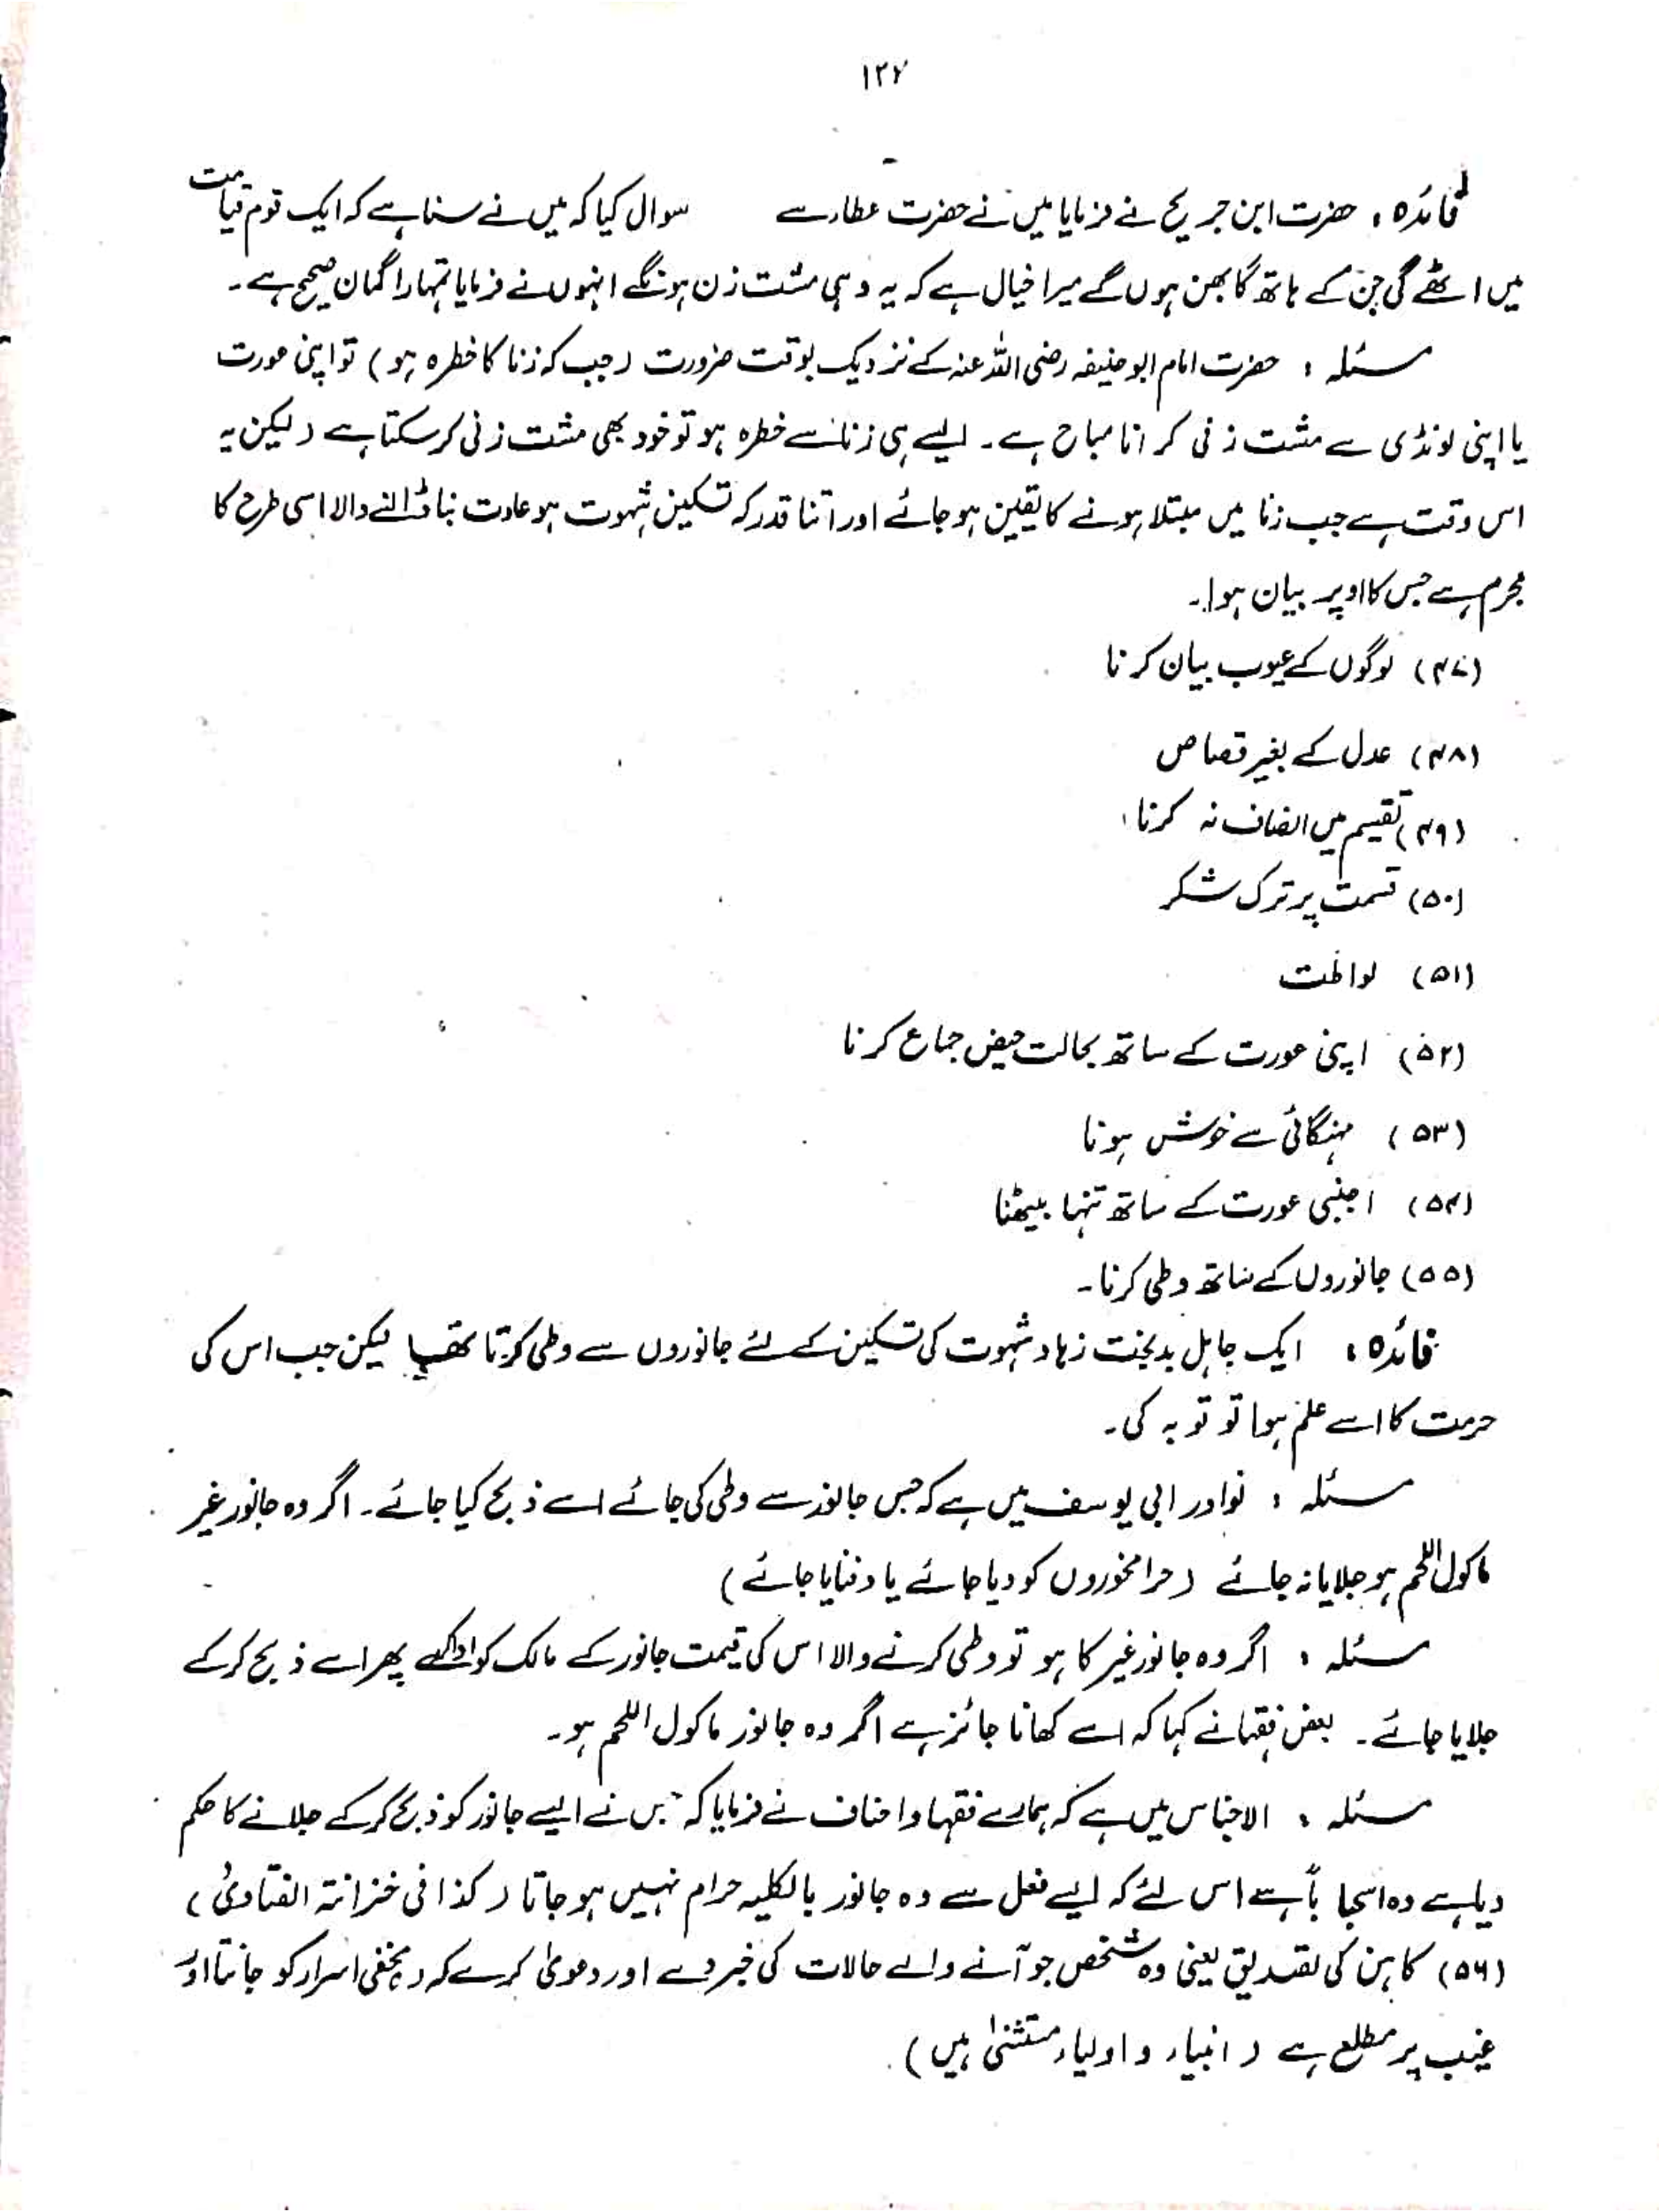 ۱۲۷
فائدہ ؛ حضرت ابن جریج نے فرمایا میں نے حضرت عطاء سے سوال کیا کہ میں نے سنا ہے کہ ایک قوم قیامت
میں اٹھے گی جن کے ہاتھ گابھن ہوں گے میرا خیال ہے کہ یہ وہی مشت زن ہونگے انہوں نے فرمایا تمہارا گمان صحیح ہے۔
مسئلہ ؛ حضرت امام ابوحنیفہ رضی اللہ عنہ کے نزدیک بوقت ضرورت (جب کہ زنا کا خطرہ ہو) تو اپنی عورت
یا اپنی لونڈی سے مشت زنی کرانا مباح ہے۔ ایسے ہی زنا سے خطرہ ہو تو خود بھی مشت زنی کر سکتا ہے (لیکن یہ
اس وقت ہے جب زنا میں مبتلا ہونے کا یقین ہو جائے اور اتنا قدر کہ تسکین شہوت ہو عادت بنا ڈالنے والا اسی طرح کا
مجرم ہے جس کا اوپر بیان ہوا۔
(۴۷) لوگوں کے عیوب بیان کرنا
(۴۸) عدل کے بغیر قصاص
(۴۹) تقسیم میں انصاف نہ کرنا
(۵۰) قسمت پر ترک شکر
(۵۱) لواطت
(۵۲) اپنی عورت کے ساتھ بحالت حیض جماع کرنا
(۵۳) مہنگائی سے خوش ہونا
(۵۴) اجنبی عورت کے ساتھ تنہا بیٹھنا
(۵۵) جانوروں کے ساتھ وطی کرنا۔
فائدہ ؛ ایک جاہل بدبخت زہاد شہوت کی تسکین کے لئے جانوروں سے وطی کرتا تھا لیکن جب اس کی
حرمت کا اسے علم ہوا تو توبہ کی۔
مسئلہ ؛ نوادر ابی یوسف میں ہے کہ جس جانور سے وطی کی جائے اسے ذبح کیا جائے۔ اگر وہ جانور غیر
ماکول اللحم ہو جلایا نہ جائے (حرامخوروں کو دیا جائے یا دفنایا جائے)
مسئلہ ؛ اگر وہ جانور غیر کا ہو تو وطی کرنے والا اس کی قیمت جانور کے مالک کو ادا کرے پھر اسے ذبح کر کے
جلایا جائے۔ بعض فقہا نے کہا کہ اسے کھانا جائز ہے اگر وہ جانور ماکول اللحم ہو۔
مسئلہ ؛ الاجناس میں ہے کہ ہمارے فقہا واحناف نے فرمایا کہ جس نے ایسے جانور کو ذبح کر کے جلانے کا حکم
دیا ہے وہ استحباباً ہے اس لئے کہ ایسے فعل سے وہ جانور بالکلیہ حرام نہیں ہو جاتا (کذا فی خزانۃ الفتاویٰ)
(۵۶) کاہن کی تصدیق یعنی وہ شخص جو آنے والے حالات کی خبر دے اور دعویٰ کرے کہ وہ مخفی اسرار کو جانتا اور
غیب پر مطلع ہے (انبیاء و اولیاء مستثنیٰ ہیں)۔